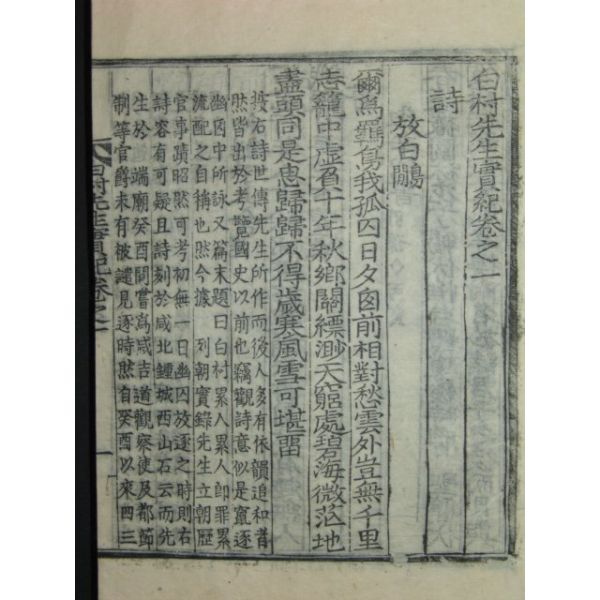 白村先生實紀卷之一
詩
放白鷳
爾爲羈鳥我孤囚日夕囱前相對愁雲外豈無千里
志籠中虛負十年秋鄕關縹渺天窮處碧海微茫地
盡頭同是思歸歸不得歲寒風雪可堪畱
按右詩世傳先生所作而後人多有依韻追和者
然皆出於考覽國史以前也竊觀詩意似是竄逐
幽囚中所詠又篇末題曰白村累人累人卽罪累
流配之自稱也然今據 列朝實錄先生立朝歷
官事蹟昭然可考初無一日幽囚放逐之時則右
詩容有可疑且詩刻於咸北鍾城西山石云而先
生於 端廟癸酉間嘗爲咸吉道觀察使及都節
制等官爵未有被譴見逐時然自癸酉以來四三
白村先生實紀卷之一 一